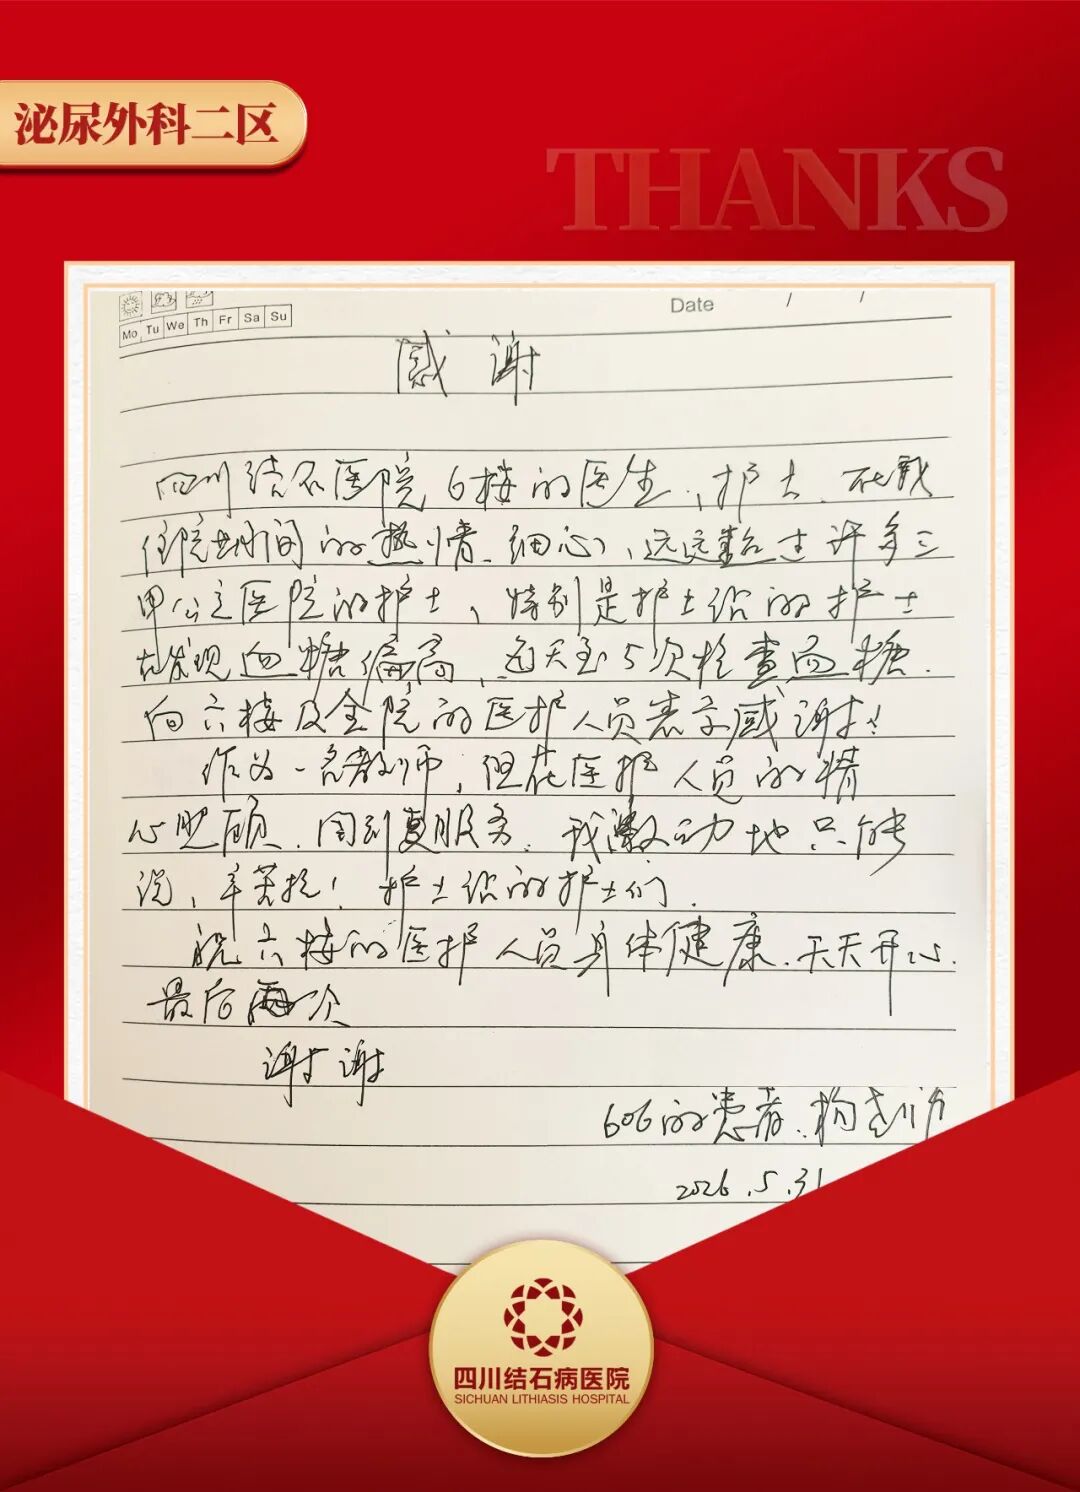 泌尿外科二区
THANKS
Date / /
Mo Tu We Th Fr Sa Su
感谢
四川结石医院6楼的医生、护士、在我
住院期间的热情、细心、远远超过许多三
甲公立医院的护士、特别是护士站的护士
在发现血糖偏高、每天到5次检查血糖、
向六楼及全院的医护人员表示感谢!
作为一名教师,但在医护人员的精
心照顾、周到服务、我激动地只能
说、辛苦您!护士站的护士们、
祝六楼的医护人员身体健康、天天开心、
最后两次
谢谢
606的患者、杨
2026.5.31
四川结石病医院
SICHUAN LITHIASIS HOSPITAL